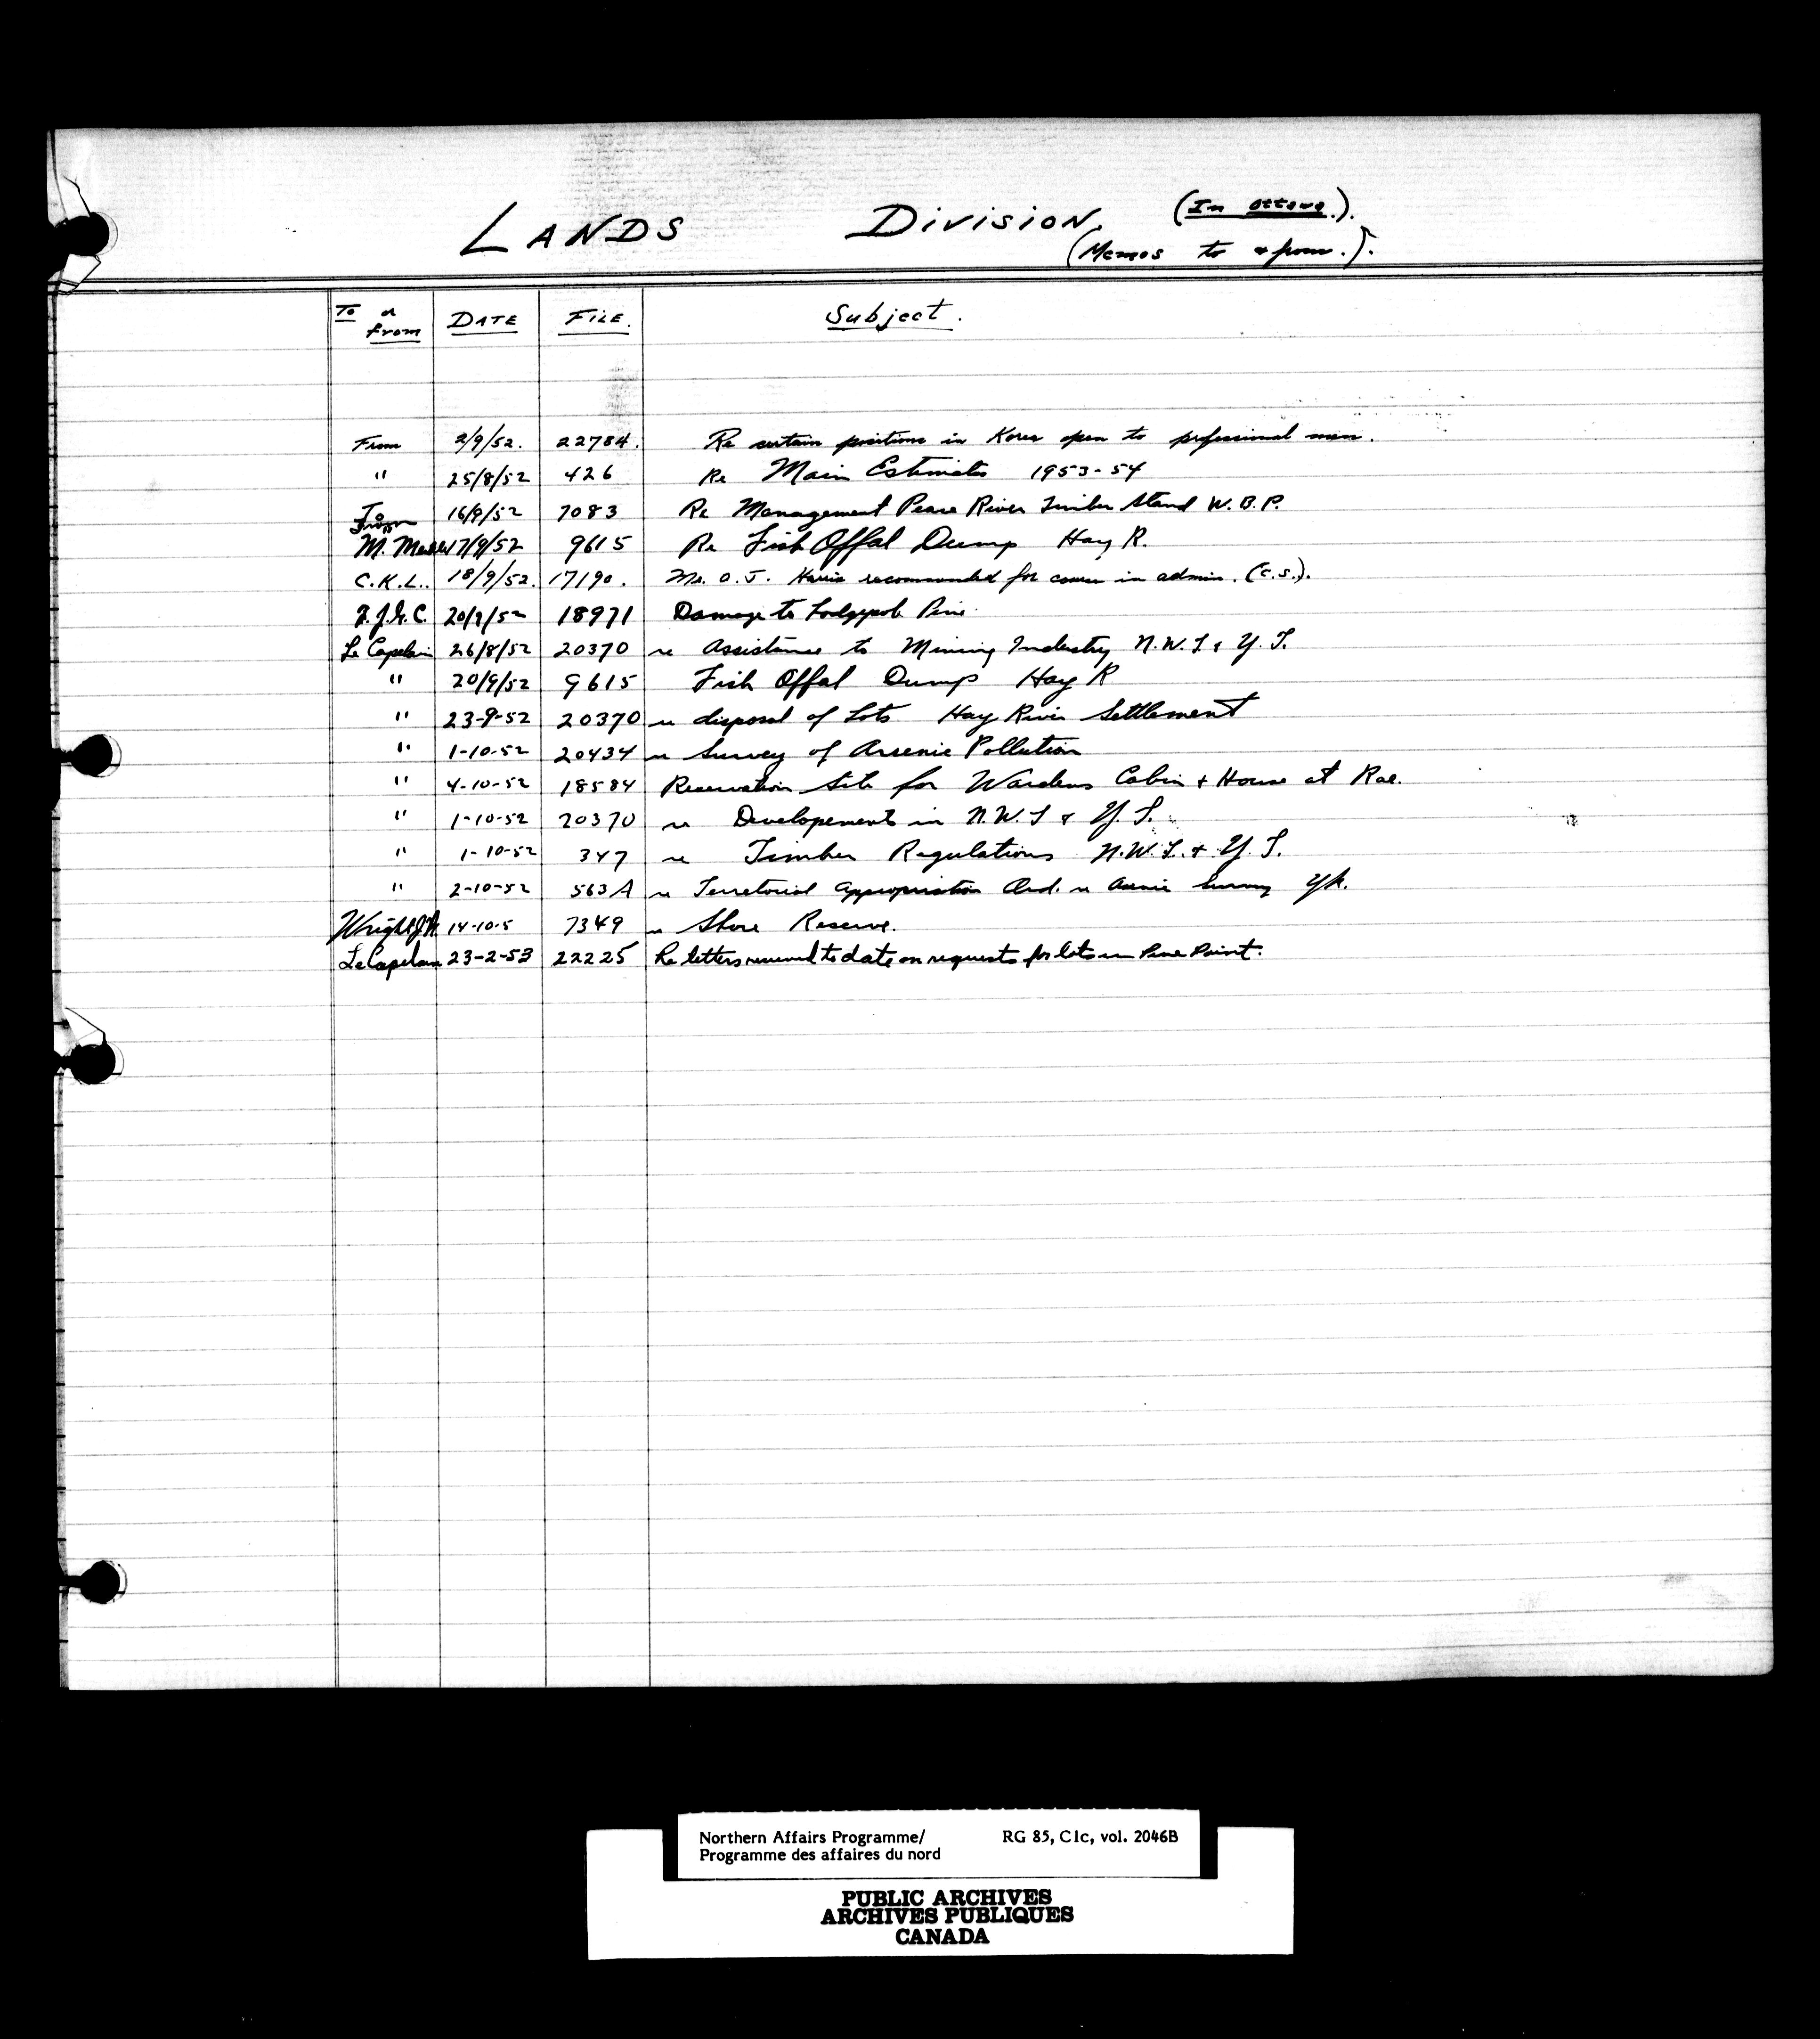 LANDS DIVISION. (In Ottawa.).
(Memos to & from.).
To or from DATE FILE. Subject.
From 2/9/52. 22784. Re certain positions in Korea open to professional men.
" 25/8/52 426 Re Main Estimates 1953-54
To 16/9/52 7083 Re Management Peace River Timber Stand W.B.P.
From
M. 17/9/52 9615 Re Fish Offal Dump Hay R.
C.K.L.. 18/9/52. 17190. Mr. O.J. Harris recommended for course in admin. (C.S.).
20/9/52 18971 Damage to Lodgepole Pine.
Le Capelain 26/8/52 20370 re Assistance to Mining Industry N.W.T & Y.T.
" 20/9/52 9615 Fish Offal Dump Hay R
" 23-9-52 20370 re disposal of Lots Hay River Settlement
" 1-10-52 20434 re Survey of Arsenic Pollution
" 4-10-52 18584 Reservation Site for Wardens Cabin & House at Rae.
" 1-10-52 20370 re Developements in N.W.T & Y.T.
" 1-10-52 347 re Timber Regulations N.W.T. & Y.T.
" 2-10-52 563A re Territorial Appropriation Ord. re Survey Yk.
Wright J.A 14-10-5 7349 re Shore Reserve.
LeCapelain 23-2-53 22225 Re letters received to date on requests for lots in Pine Point.
Northern Affairs Programme/ RG 85, C1c, vol. 2046B
Programme des affaires du nord
PUBLIC ARCHIVES
ARCHIVES PUBLIQUES
CANADA